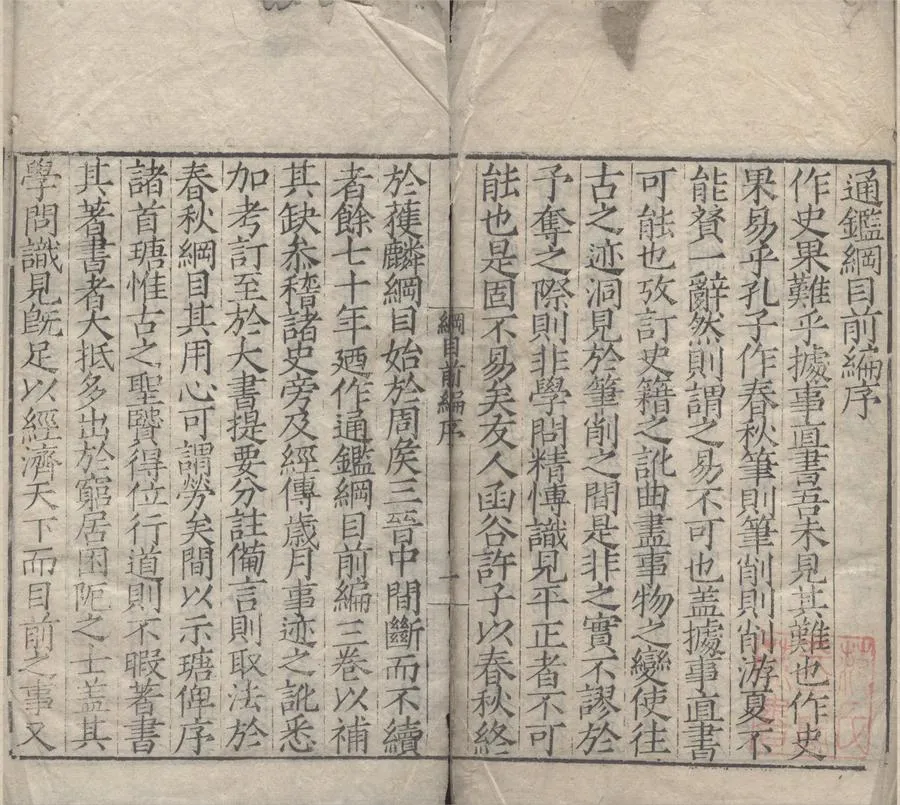 通鑑綱目前編序
作史果難乎據事直書吾未見其難也作史
果易乎孔子作春秋筆則筆削則削游夏不
能賛一辭然則謂之易不可也盖據事直書
可能也攷訂史籍之訛曲盡事物之變使往
古之迹洞見於筆削之間是非之實不謬於
予奪之際則非學問精愽識見平正者不可
能也是固不易矣友人函谷許子以春秋終
綱目前編序
一
於獲麟綱目始於周矦三晉中間斷而不續
者餘七十年廼作通鑑綱目前編三卷以補
其缺叅稽諸史旁及經傳歳月事迹之訛悉
加考訂至於大書提要分註備言則取法於
春秋綱目其用心可謂勞矣間以示瑭俾序
諸首瑭惟古之聖賢得位行道則不暇著書
其著書者大抵多出於窮居困阨之士盖其
學問識見旣足以經濟天下而目前之事又